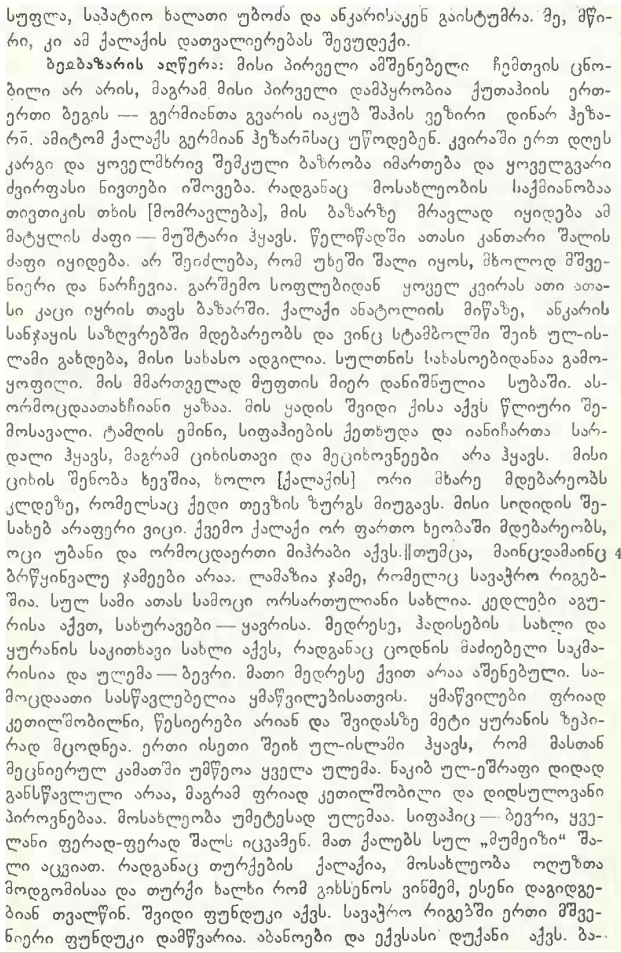 სუფლა, საპატიო ხალათი უბოძა და ანკარისაკენ გაისტუმრა. მე, მწი-
რი, კი ამ ქალაქის დათვალიერებას შევუდექი.
ბეგბაზარის აღწერა: მისი პირველი ამშენებელი ჩემთვის ცნო-
ბილი არ არის, მაგრამ მისი პირველი დამპყრობია ქუთაჰიის ერთ-
ერთი ბეგის — გერმიანთა გვარის იაკუბ შაჰის ვეზირი დინარ ჰეზა-
რი. ამიტომ ქალაქს გერმიან ჰეზარისაც უწოდებენ. კვირაში ერთ დღეს
კარგი და ყოველმხრივ შემკული ბაზრობა იმართება და ყოველგვარი
ძვირფასი ნივთები იშოვება. რადგანაც მოსახლეობის საქმიანობაა
თივთიკის თხის [მომრავლება], მის ბაზარზე მრავლად იყიდება ამ
მატყლის ძაფი — მუშტარი ჰყავს. წელიწადში ათასი კანთარი შალის
ძაფი იყიდება. არ შეიძლება, რომ უხეში შალი იყოს, მხოლოდ მშვე-
ნიერი და ნარჩევია. გარშემო სოფლებიდან ყოველ კვირას ათი ათა-
სი კაცი იყრის თავს ბაზარში. ქალაქი ანატოლიის მიწაზე, ანკარის
სანჯაყის საზღვრებში მდებარეობს და ვინც სტამბოლში შეიხ ულ-ის-
ლამი გახდება, მისი სახასო ადგილია. სულთნის სახასოებიდანაა გამო-
ყოფილი. მის მმართველად მუფთის მიერ დანიშნულია სუბაში. ას-
ორმოცდაათახჩიანი ყაზაა. მის ყადის შვიდი ქისა აქვს წლიური შე-
მოსავალი. ტამღის ემინი, სიფაჰიების ქეთხუდა და იანიჩართა სარ-
დალი ჰყავს, მაგრამ ციხისთავი და მეციხოვნეები არა ჰყავს. მისი
ციხის შენობა ხევშია, ხოლო [ქალაქის] ორი მხარე მდებარეობს
კლდეზე, რომელსაც ქედი თევზის ზურგს მიუგავს. მისი სიდიდის შე-
სახებ არაფერი ვიცი. ქვემო ქალაქი ორ ფართო ხეობაში მდებარეობს,
ოცი უბანი და ორმოცდაერთი მიჰრაბი აქვს.||თუმცა, მაინცდამაინც 4
ბრწყინვალე ჯამეები არაა. ლამაზია ჯამე, რომელიც სავაჭრო რიგებ-
შია. სულ სამი ათას სამოცი ორსართულიანი სახლია. კედლები აგუ-
რისა აქვთ, სახურავები — ყავრისა. მედრესე, ჰადისების სახლი და
ყურანის საკითხავი სახლი აქვს, რადგანაც ცოდნის მაძიებელი საკმა-
რისია და ულემა — ბევრი. მათი მედრესე ქვით არაა აშენებული. სა-
მოცდაათი სასწავლებელია ყმაწვილებისათვის. ყმაწვილები ფრიად
კეთილშობილნი, წესიერები არიან და შვიდასზე მეტი ყურანის ზეპი-
რად მცოდნეა. ერთი ისეთი შეიხ ულ-ისლამი ჰყავს, რომ მასთან
მეცნიერულ კამათში უმწეოა ყველა ულემა. ნაკიბ ულ-ეშრაფი დიდად
განსწავლული არაა, მაგრამ ფრიად კეთილშობილი და დიდსულოვანი
პიროვნებაა. მოსახლეობა უმეტესად ულემაა. სიფაჰიც — ბევრი, ყვე-
ლანი ფერად-ფერად შალს იცვამენ. მათ ქალებს სულ „მუმეიზი“ შა-
ლი აცვიათ. რადგანაც თურქების ქალაქია, მოსახლეობა ოღუზთა
მოდგომისაა და თურქი ხალხი რომ გიხსენოს ვინმემ, ესენი დაგიდგე-
ბიან თვალწინ. შვიდი ფუნდუკი აქვს. სავაჭრო რიგებში ერთი მშვე-
ნიერი ფუნდუკი დამწვარია. აბანოები და ექვსასი დუქანი აქვს. ბა-